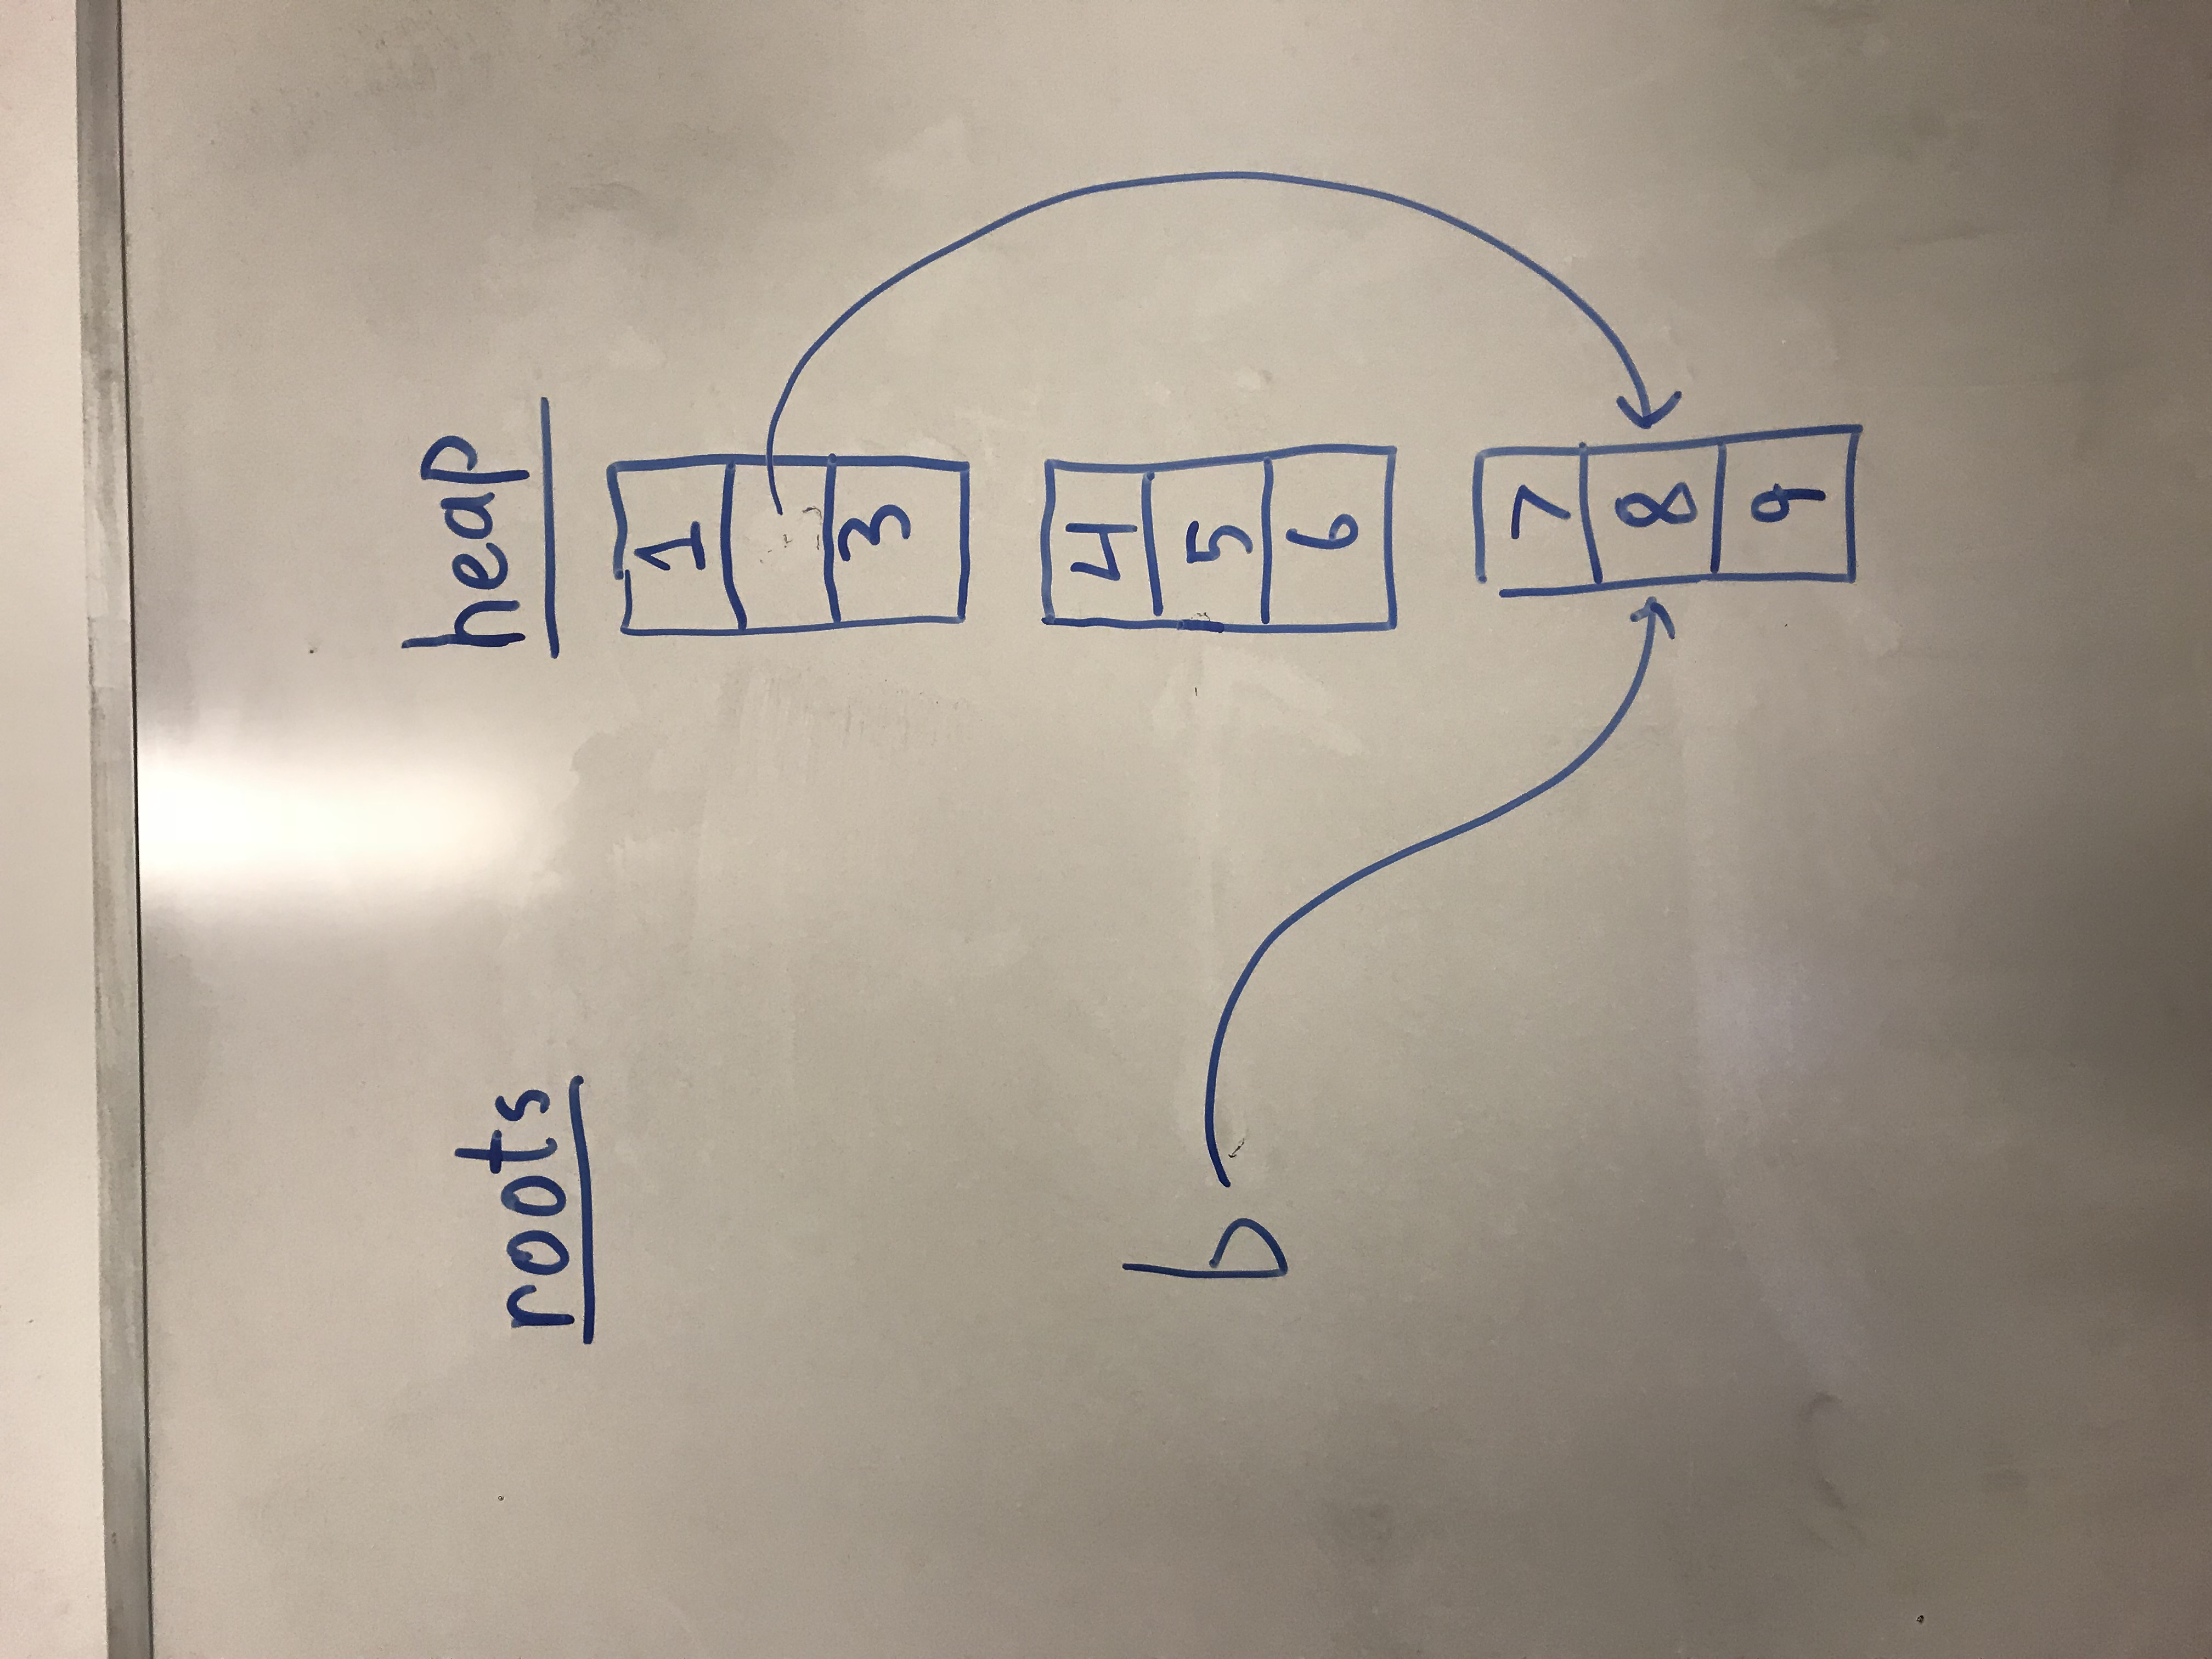 roots
heap
1
3
4
5
6
b
7
8
9